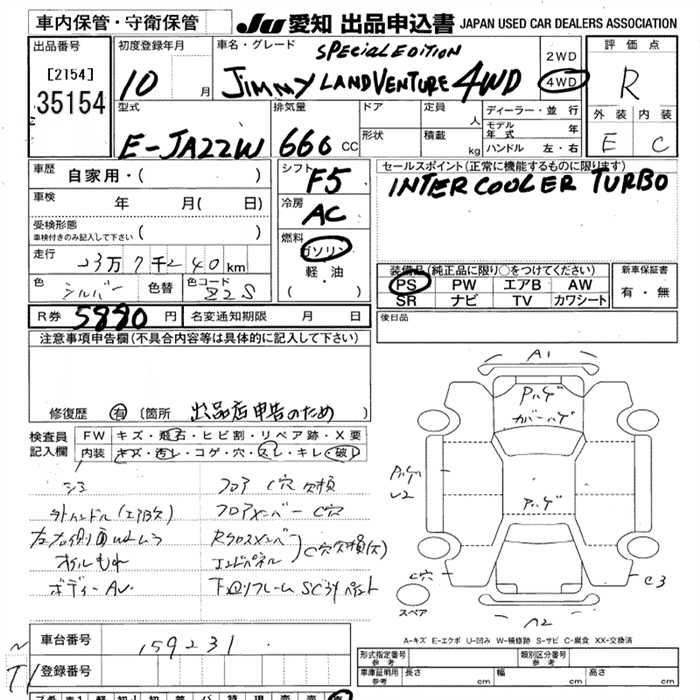 車内保管・守衛保管
JU 愛知 出品申込書 JAPAN USED CAR DEALERS ASSOCIATION
出品番号
[2154]
35154
初度登録年月
10 月
車名・グレード
SPECIAL EDITION
JIMMY LANDVENTURE 4WD
2WD
4WD
評価点
R
外装 内装
E C
型式
E-JA22W
排気量
660 CC
ドア
形状
定員 人
積載 kg
ディーラー・並行
モデル年式
ハンドル 左・右
車歴 自家用・( )
車検 年 月( 日)
受検形態
車検付きのみ記入して下さい ( )
走行 23万7千240km
色 シルバー 色替 色コード Z2S
シフト F5
冷房 AC
燃料 ガソリン
軽・油
( )
セールスポイント(正常に機能するものに限ります)
INTERCOOLER TURBO
装備品(純正品に限り○をつけてください)
PS PW エアB AW
SR ナビ TV カワシート
新車保証書
有・無
R券 5880 円 名変通知期限 月 日
後日品
注意事項申告欄(不具合内容等は具体的に記入して下さい)
修復歴 有 (箇所 出品店申告のため )
検査員記入欄
FW キズ・飛石・ヒビ割・リペア跡・X要
内装 キズ・汚レ・コゲ・穴・スレ・キレ・破レ
フロア C穴 欠損
フロアメンバー C穴
Rクロスメンバー
エンドパネル
C穴欠損(大)
オイルもれ
ボディーAU
A1
Pハゲ
カバーハゲ
Pハゲ
U2
Aハゲ
C穴
C3
スペア
A2
A-キズ E-エクボ U-凹み W-補修跡 S-サビ C-腐食 XX-交換済
車台番号 159231
登録番号
形式指定番号 参考
類別区分番号 参考
車庫証明用 参考 長さ cm 幅 cm 高さ cm